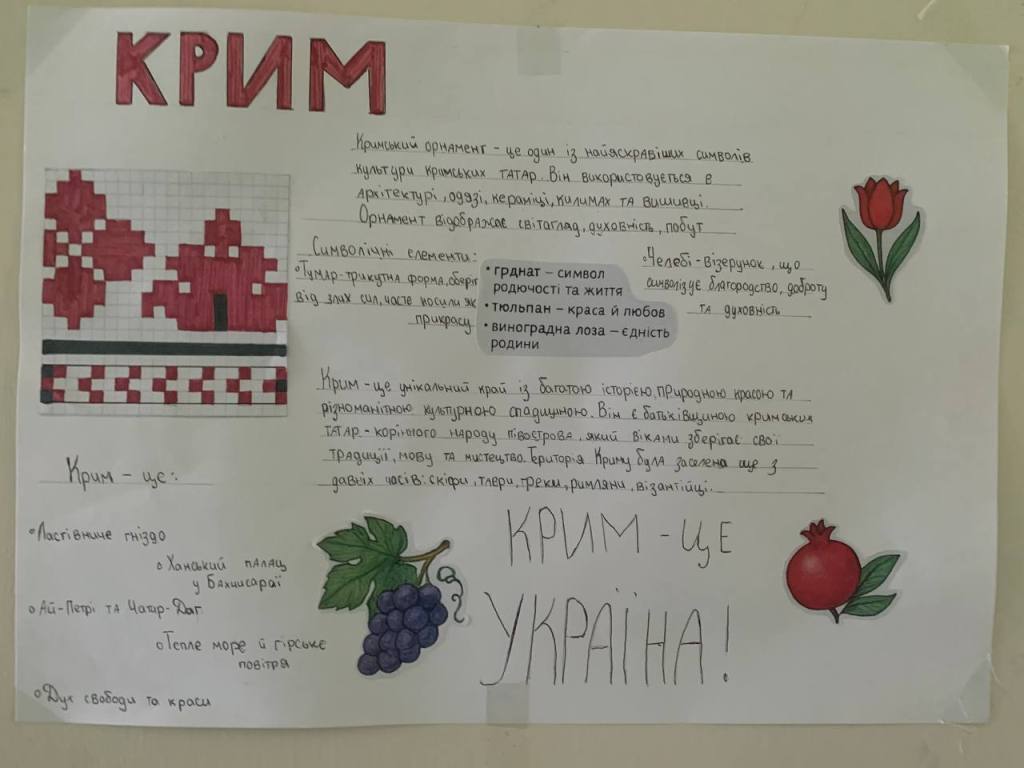 КРИМ
Кримський орнамент - це один із найяскравіших символів
культури кримських татар. Він використовується в
архітектурі, одязі, кераміці, килимах та вишивці.
Орнамент відображає світогляд, духовність, побут
Символічні елементи:
Тумар-трикутна форма, оберіг
від злих сил, часто носили як
прикрасу
• грднат – символ
родючості та життя
• тюльпан – краса й любов
• виноградна лоза – єдність
родини
Челебі - візерунок, що
символізує благородство, доброту
та духовність
Крим - це унікальний край із багатою історією, природною красою та
різноманітною культурною спадщиною. Він є батьківщиною кримських
татар - корінного народу півострова, який віками зберігає свої
традиції, мову та мистецтво. Територія Криму була заселена ще з
давніх часів: скіфи, таври, греки, римляни, візантійці.
Крим - це:
Ластівчине гніздо
Ханський палац
у Бахчисараї
Ай-Петрі та Чатир-Даг
Тепле море й гірське
повітря
Дух свободи та краси
КРИМ - ЦЕ
УКРАЇНА!